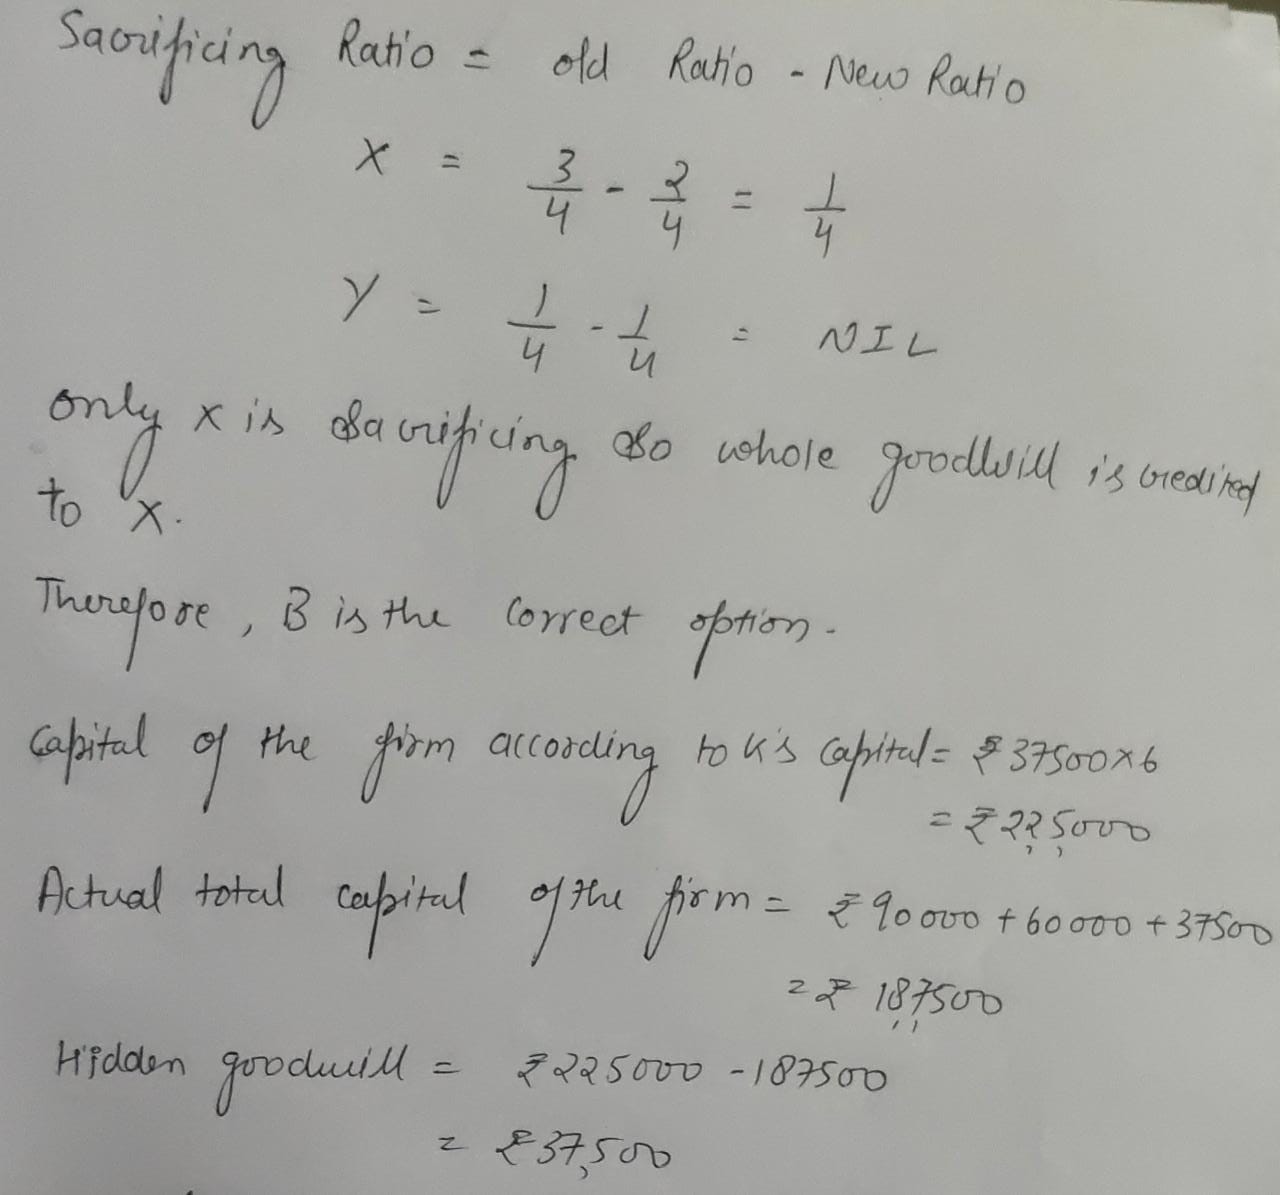 Sacrificing Ratio = old Ratio - New Ratio
X = 3/4 - 2/4 = 1/4
Y = 1/4 - 1/4 = NIL
only x is Sacrificing So whole goodwill is credited
to x.
Therefore, B is the Correct option.
Capital of the firm according to K's Capital = ₹37500×6
= ₹2,2,5000
Actual total capital of the firm = ₹90000 + 60000 + 37500
= ₹ 1,8,7500
Hidden goodwill = ₹225000 - 187500
= ₹37,500